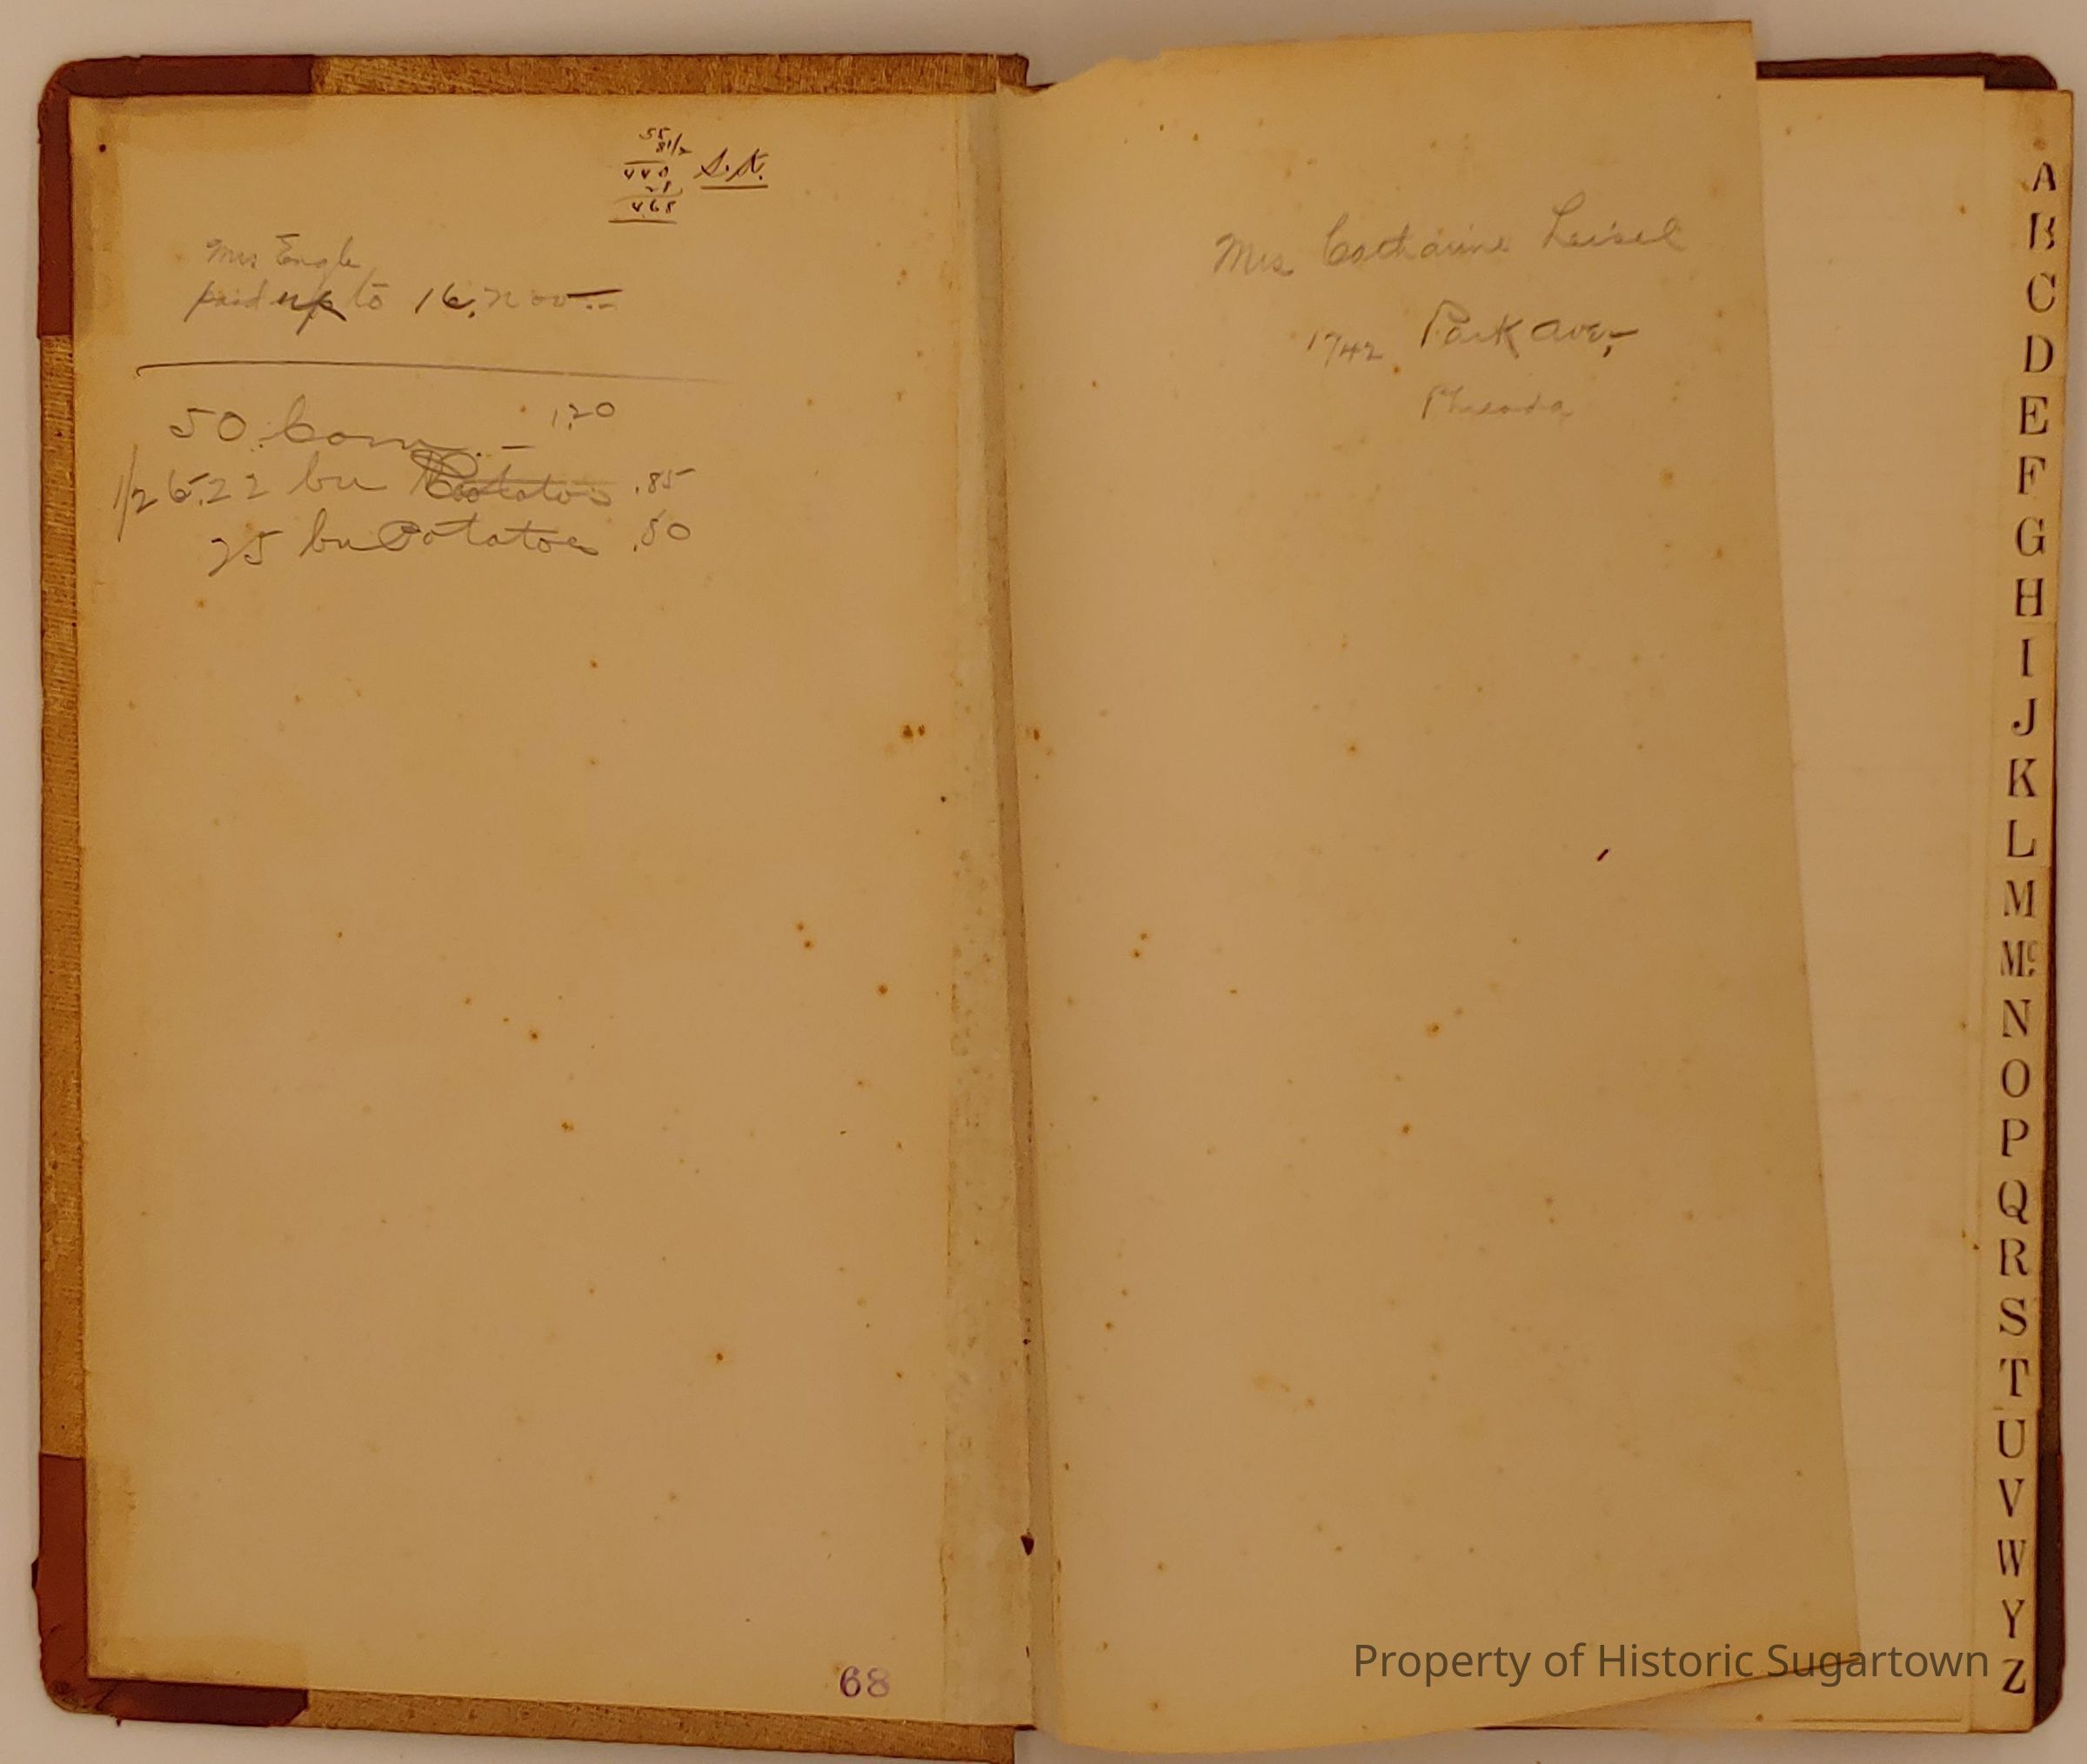 55
8 1/2
440
28
468
S.N.
Mrs Engle
paid up to 16, Nov
50 Corn 1,20
1/2 22 bu Potatoes .85
25 bu Potatoes .50
68
Mrs Catharine Leisel
1742 Park Ave,
Phila
A
B
C
D
E
F
G
H
I
J
K
L
M
Mc
N
O
P
Q
R
S
T
U
V
W
Y
Z
Property of Historic Sugartown